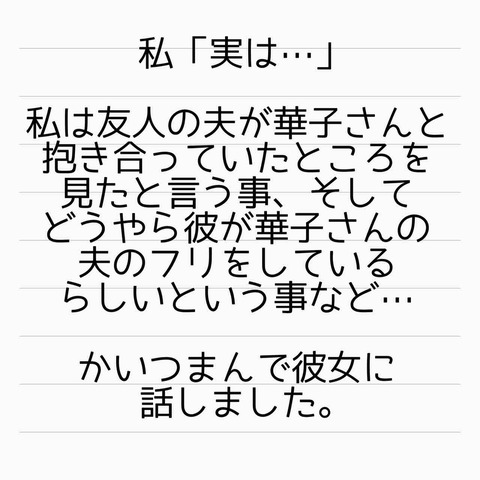 私「実は…」
私は友人の夫が華子さんと
抱き合っていたところを
見たと言う事、そして
どうやら彼が華子さんの
夫のフリをしている
らしいという事など…
かいつまんで彼女に
話しました。